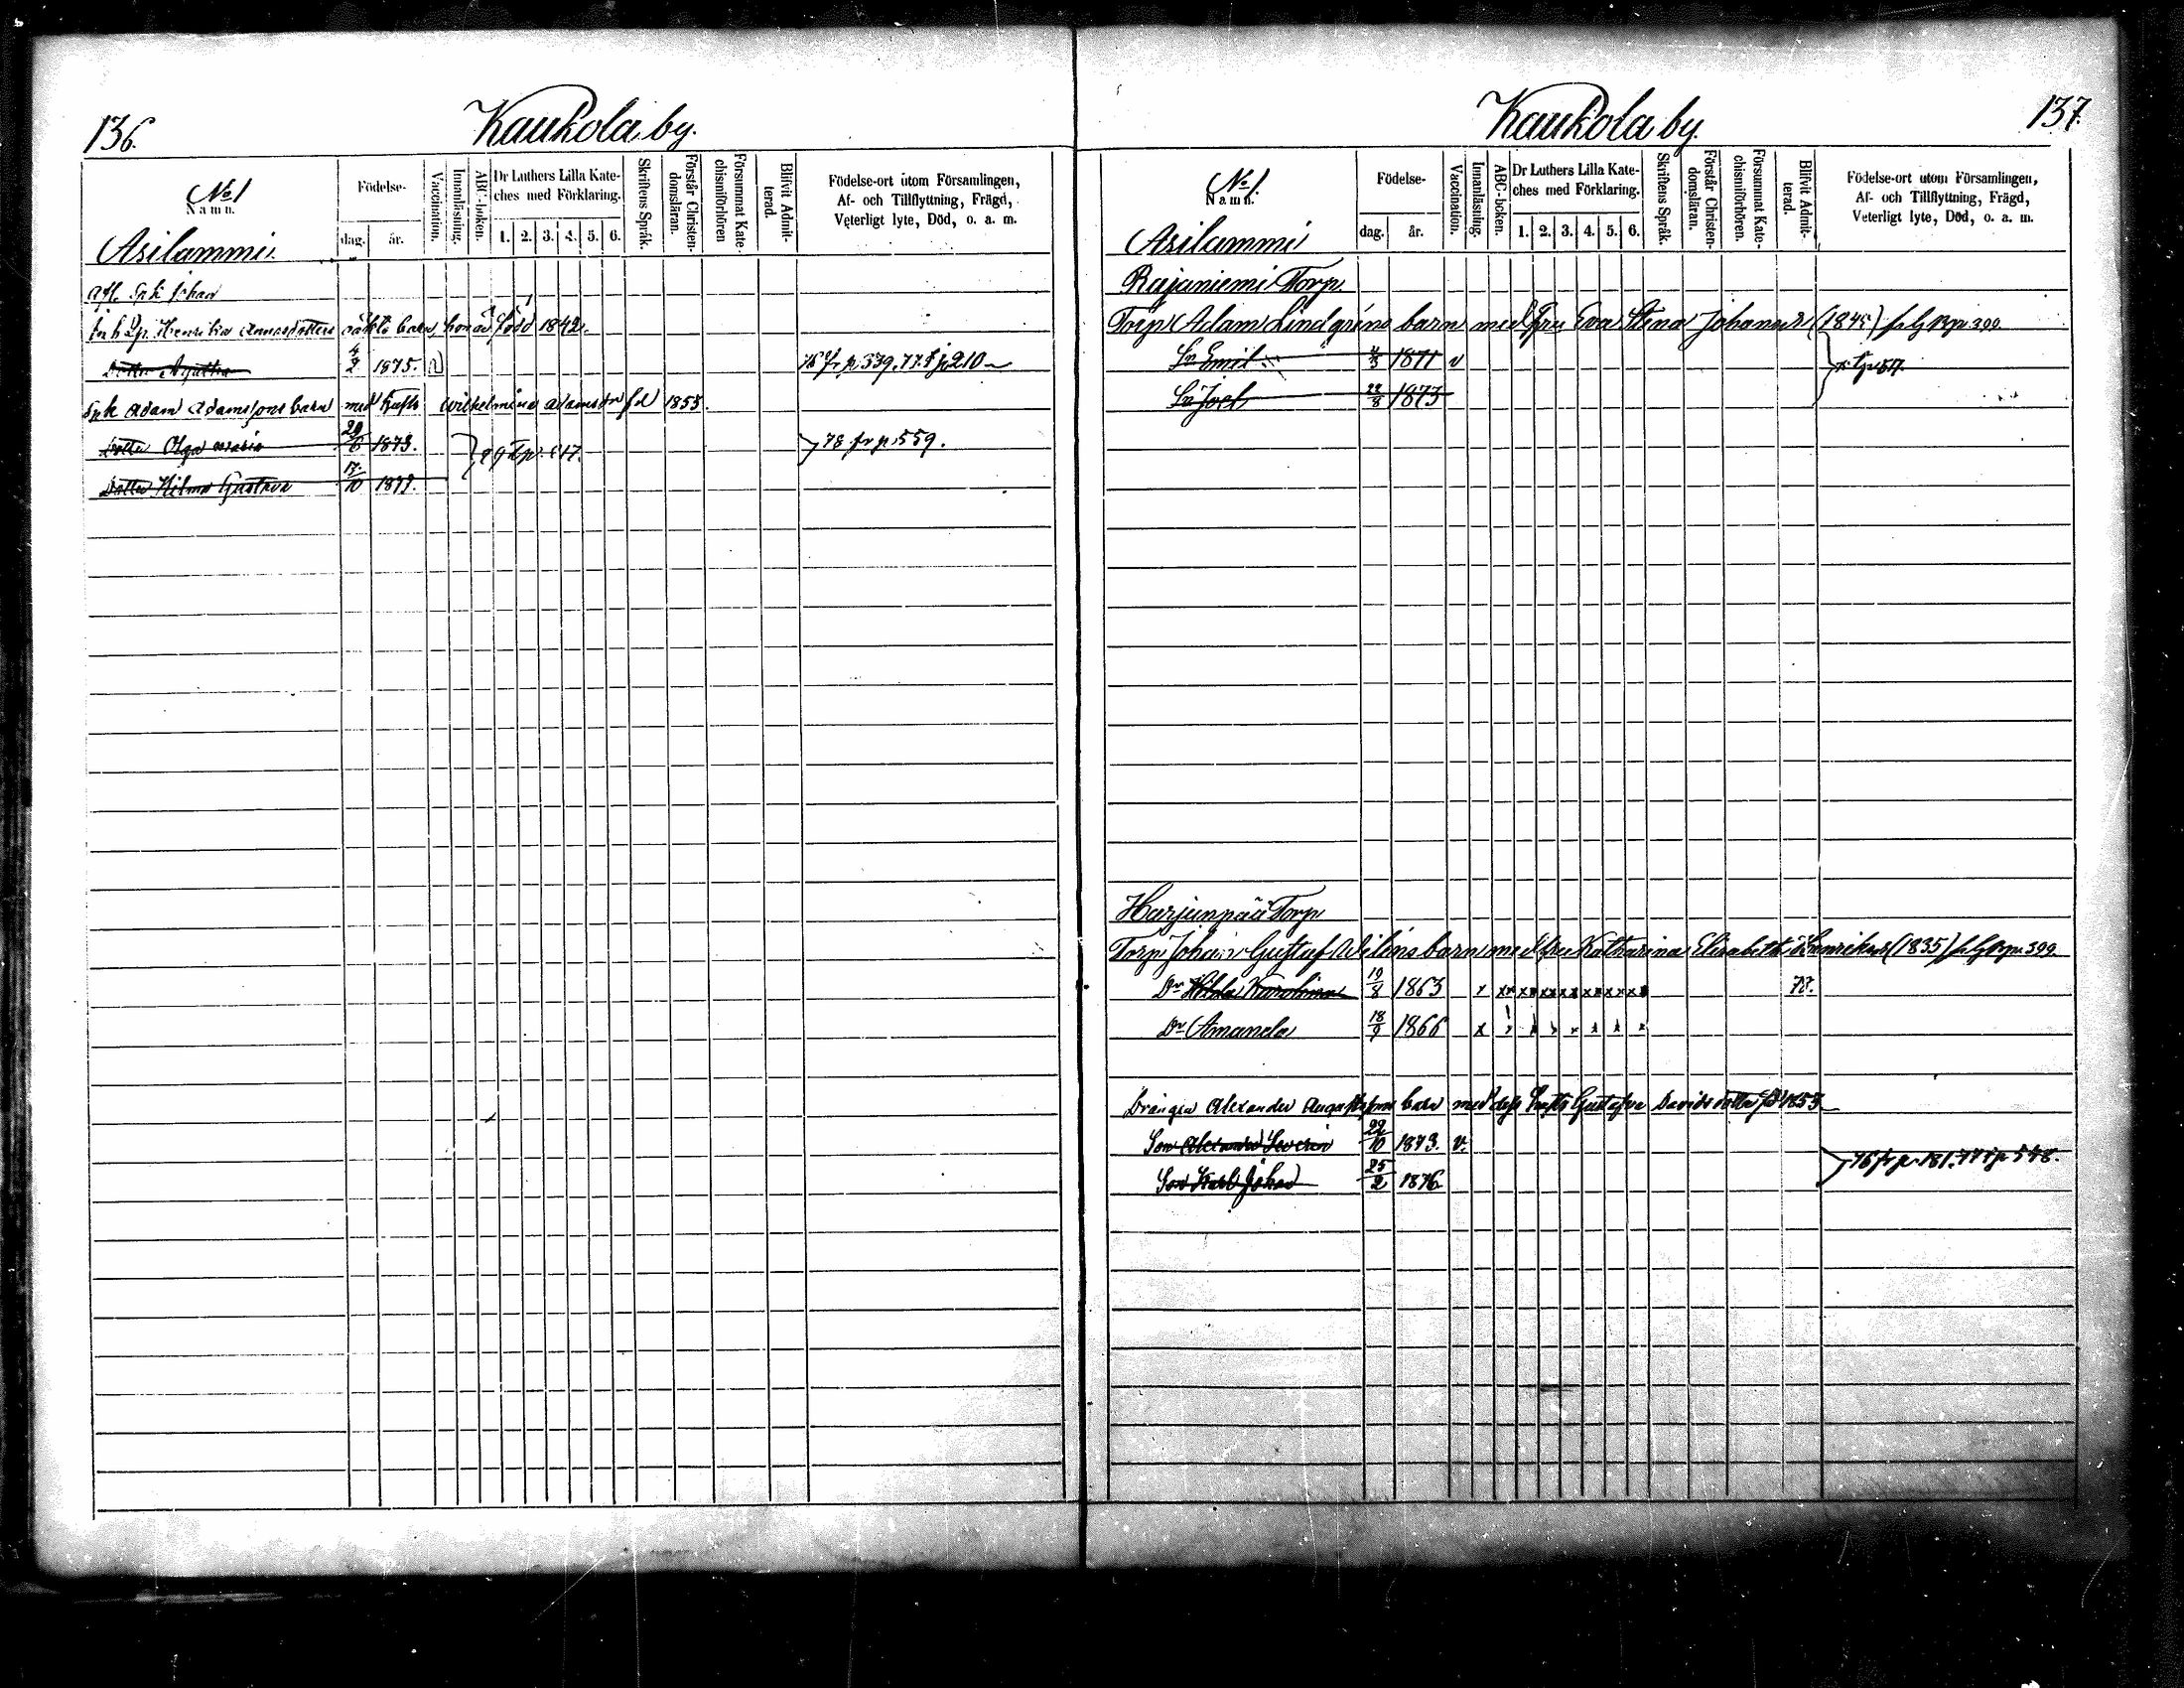 136.
Kaukola by.
No 1
Namn.
Födelse-
dag.
år.
Vaccination.
Innanläsning.
ABC-boken.
Dr Luthers Lilla Kate-
ches med Förklaring.
1. 2. 3. 4. 5. 6.
Skriftens Språk.
Förstår Christen-
domsläran.
Försummat Kate-
chismiförhören
Blifvit Admit-
terad.
Födelse-ort utom Församlingen,
Af- och Tillflyttning, Frägd,
Veterligt lyte, Död, o. a. m.
Asilammi.
Johan
Annasdotters oäkta barn, hon är född 1842.
Dotter Agatha 4/2 1875. v fr p. 339. 77. p 210
Spk Adam Adamssons barn med hust. Wilhelmina Adamsdr fd 1853.
Dotter Olga Maria 20/6 1873. 78 fr p. 559.
Dotter Hilma Gustava 17/10 1877.
137.
Kaukola by.
No 1.
Namn.
Födelse-
dag.
år.
Vaccination.
Innanläsning.
ABC-boken.
Dr Luthers Lilla Kate-
ches med Förklaring.
1. 2. 3. 4. 5. 6.
Skriftens Språk.
Förstår Christen-
domsläran.
Försummat Kate-
chismiförhören.
Blifvit Admit-
terad.
Födelse-ort utom Församlingen,
Af- och Tillflyttning, Frägd,
Veterligt lyte, Död, o. a. m.
Asilammi
Rajaniemi Torp
Torp Adam Lindgréns barn med hru Eva Stina Johansdr (1845) 399.
Sn Emil 1871 v
Sn Joel 22/8 1873
Harjunpää Torp
Torp Johan Gustaf barn med hru Katharina Elisabeth Henriksdr (1835) 399.
Dr Hilda Karolina 19/8 1863 x xx xx xx xx xx xx xx 78.
Dr Amanda 18/9 1866 x x x x x x x x
Drängen Alexander barn med dess hust Gustafva Davidsdotter fd 1853
Son Alexander Severin 22/10 1873. v.
76 fr p. 181. 77 t p 548.
Son Karl Johan 25/2 1876